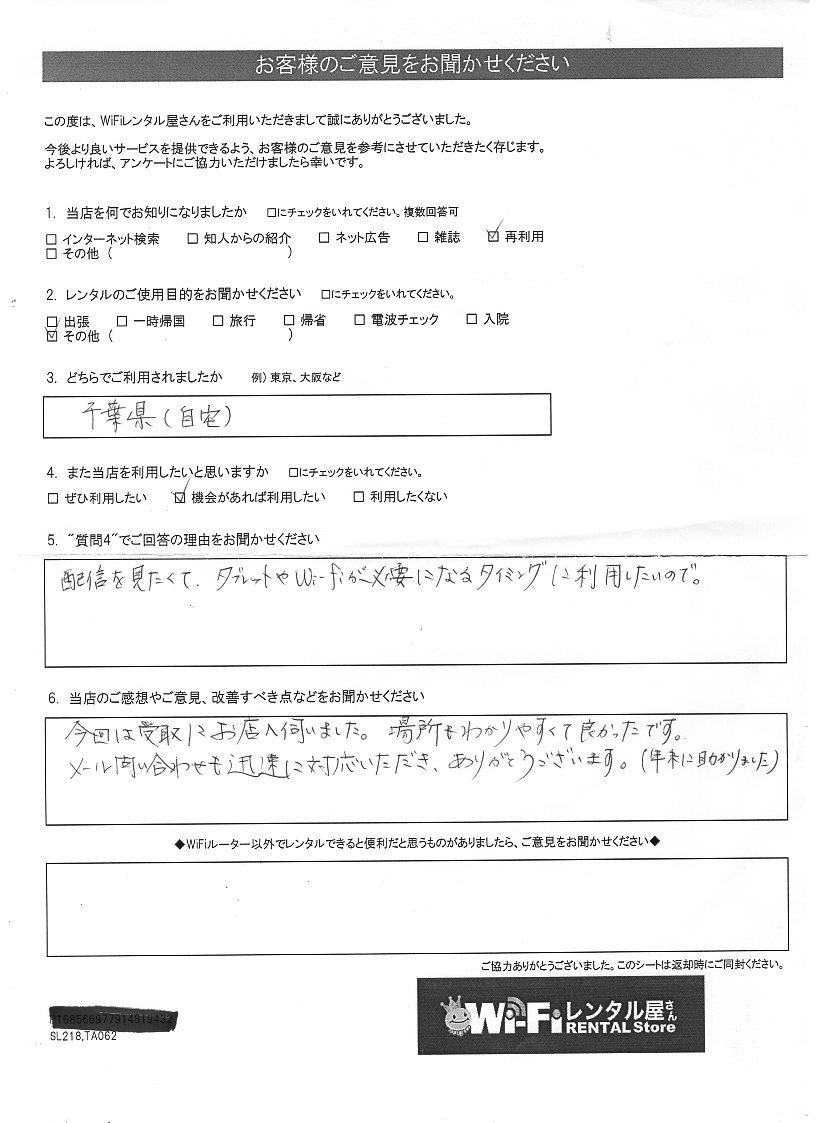 お客様のご意見をお聞かせください
この度は、WiFiレンタル屋さんをご利用いただきまして誠にありがとうございました。
今後より良いサービスを提供できるよう、お客様のご意見を参考にさせていただきたく存じます。
よろしければ、アンケートにご協力いただけましたら幸いです。
1. 当店を何でお知りになりましたか □にチェックをいれてください。複数回答可
□ インターネット検索 □ 知人からの紹介 □ ネット広告 □ 雑誌 ☑ 再利用
□ その他 ( )
2. レンタルのご使用目的をお聞かせください □にチェックをいれてください。
□ 出張 □ 一時帰国 □ 旅行 □ 帰省 □ 電波チェック □ 入院
☑ その他 ( )
3. どちらでご利用されましたか 例) 東京、大阪など
千葉県(自宅)
4. また当店を利用したいと思いますか □にチェックをいれてください。
□ ぜひ利用したい ☑ 機会があれば利用したい □ 利用したくない
5. "質問4"でご回答の理由をお聞かせください
配信を見たくて、タブレットやWi-fiが必要になるタイミングに利用したいので。
6. 当店のご感想やご意見、改善すべき点などをお聞かせください
今回は受取にお店へ伺いました。場所もわかりやすくて良かったです。
メール問い合わせも迅速に対応いただき、ありがとうございます。(年末に助かりました)
◆WiFiルーター以外でレンタルできると便利だと思うものがありましたら、ご意見をお聞かせください◆
ご協力ありがとうございました。このシートは返却時にご同封ください。
SL218,TA062
Wi-Fiレンタル屋さん
RENTAL Store